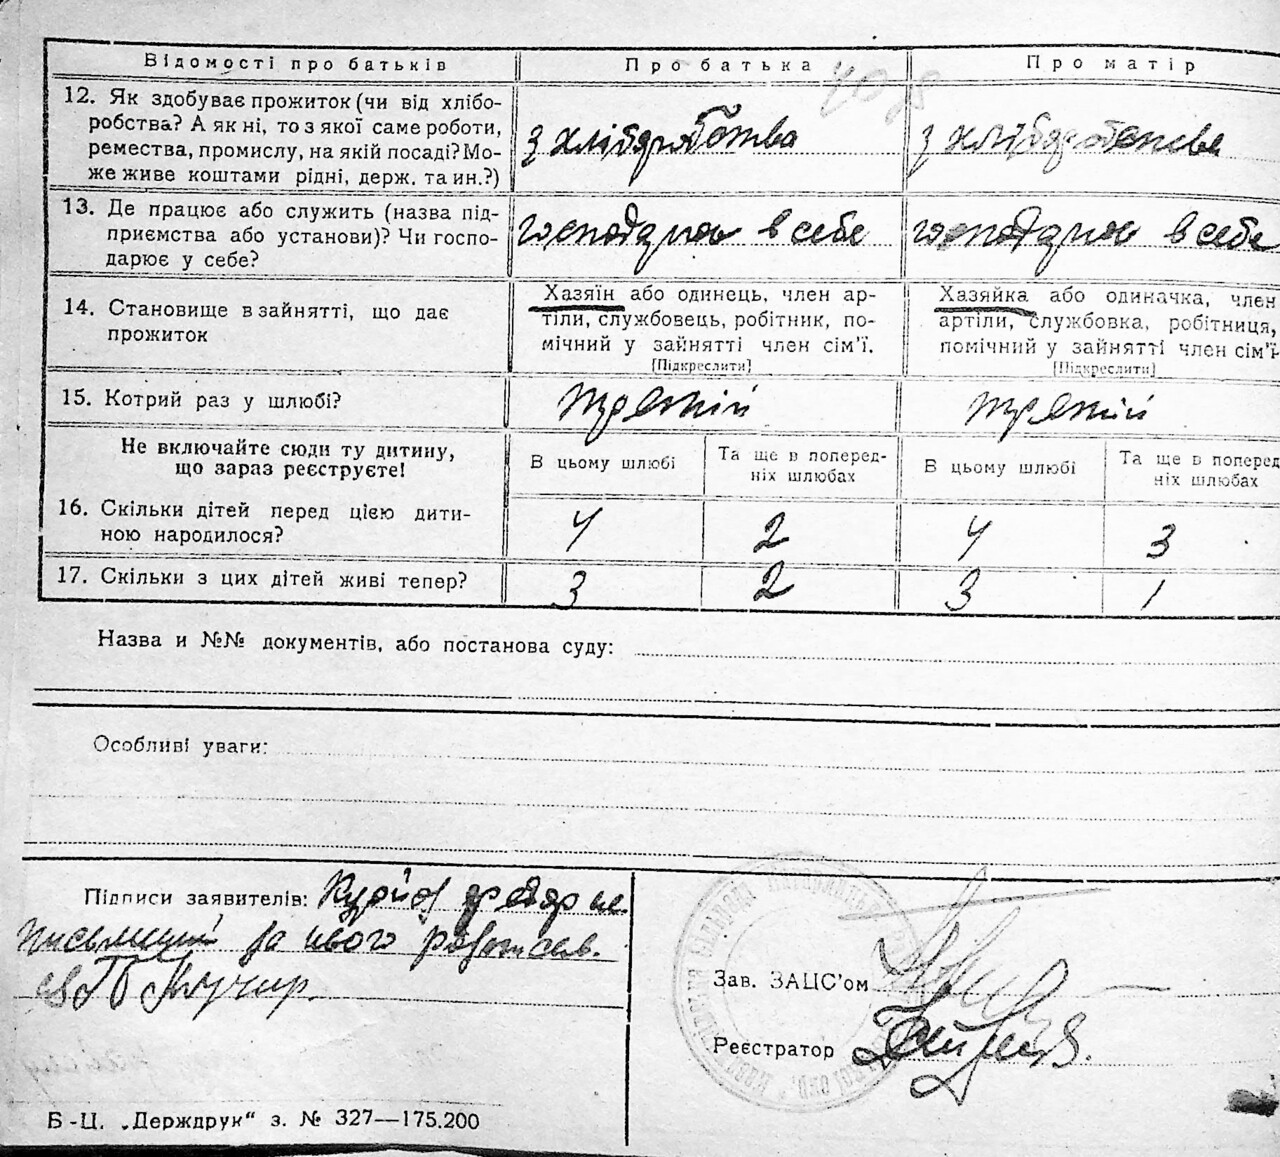 Відомості про батьків Про батька Про матір
12. Як здобуває прожиток (чи від хлібо-
робства? А як ні, то з якої саме роботи,
ремества, промислу, на якій посаді? Мо-
же живе коштами рідні, держ. та ин.?)
з хліборобства з хліборобства
13. Де працює або служить (назва під-
приємства або установи)? Чи госпо-
дарює у себе?
господарює в себе господарює в себе
14. Становище в зайнятті, що дає
прожиток
Хазяїн або одинець, член ар-
тіли, службовець, робітник, по-
мічний у зайнятті член сім'ї.
[Підкреслити]
Хазяйка або одиначка, член
артіли, службовка, робітниця,
помічний у зайнятті член сім'ї.
[Підкреслити]
15. Котрий раз у шлюбі? третій третій
Не включайте сюди ту дитину,
що зараз реєструєте!
В цьому шлюбі Та ще в поперед-
ніх шлюбах В цьому шлюбі Та ще в поперед-
ніх шлюбах
16. Скільки дітей перед цією дити-
ною народилося? 4 2 4 3
17. Скільки з цих дітей живі тепер? 3 2 3 1
Назва и №№ документів, або постанова суду:
Особливі уваги:
Підписи заявителів: не
письмений за нього
Зав. ЗАЦС'ом
Реєстратор
Б-Ц. „Держдрук“ з. № 327—175.200